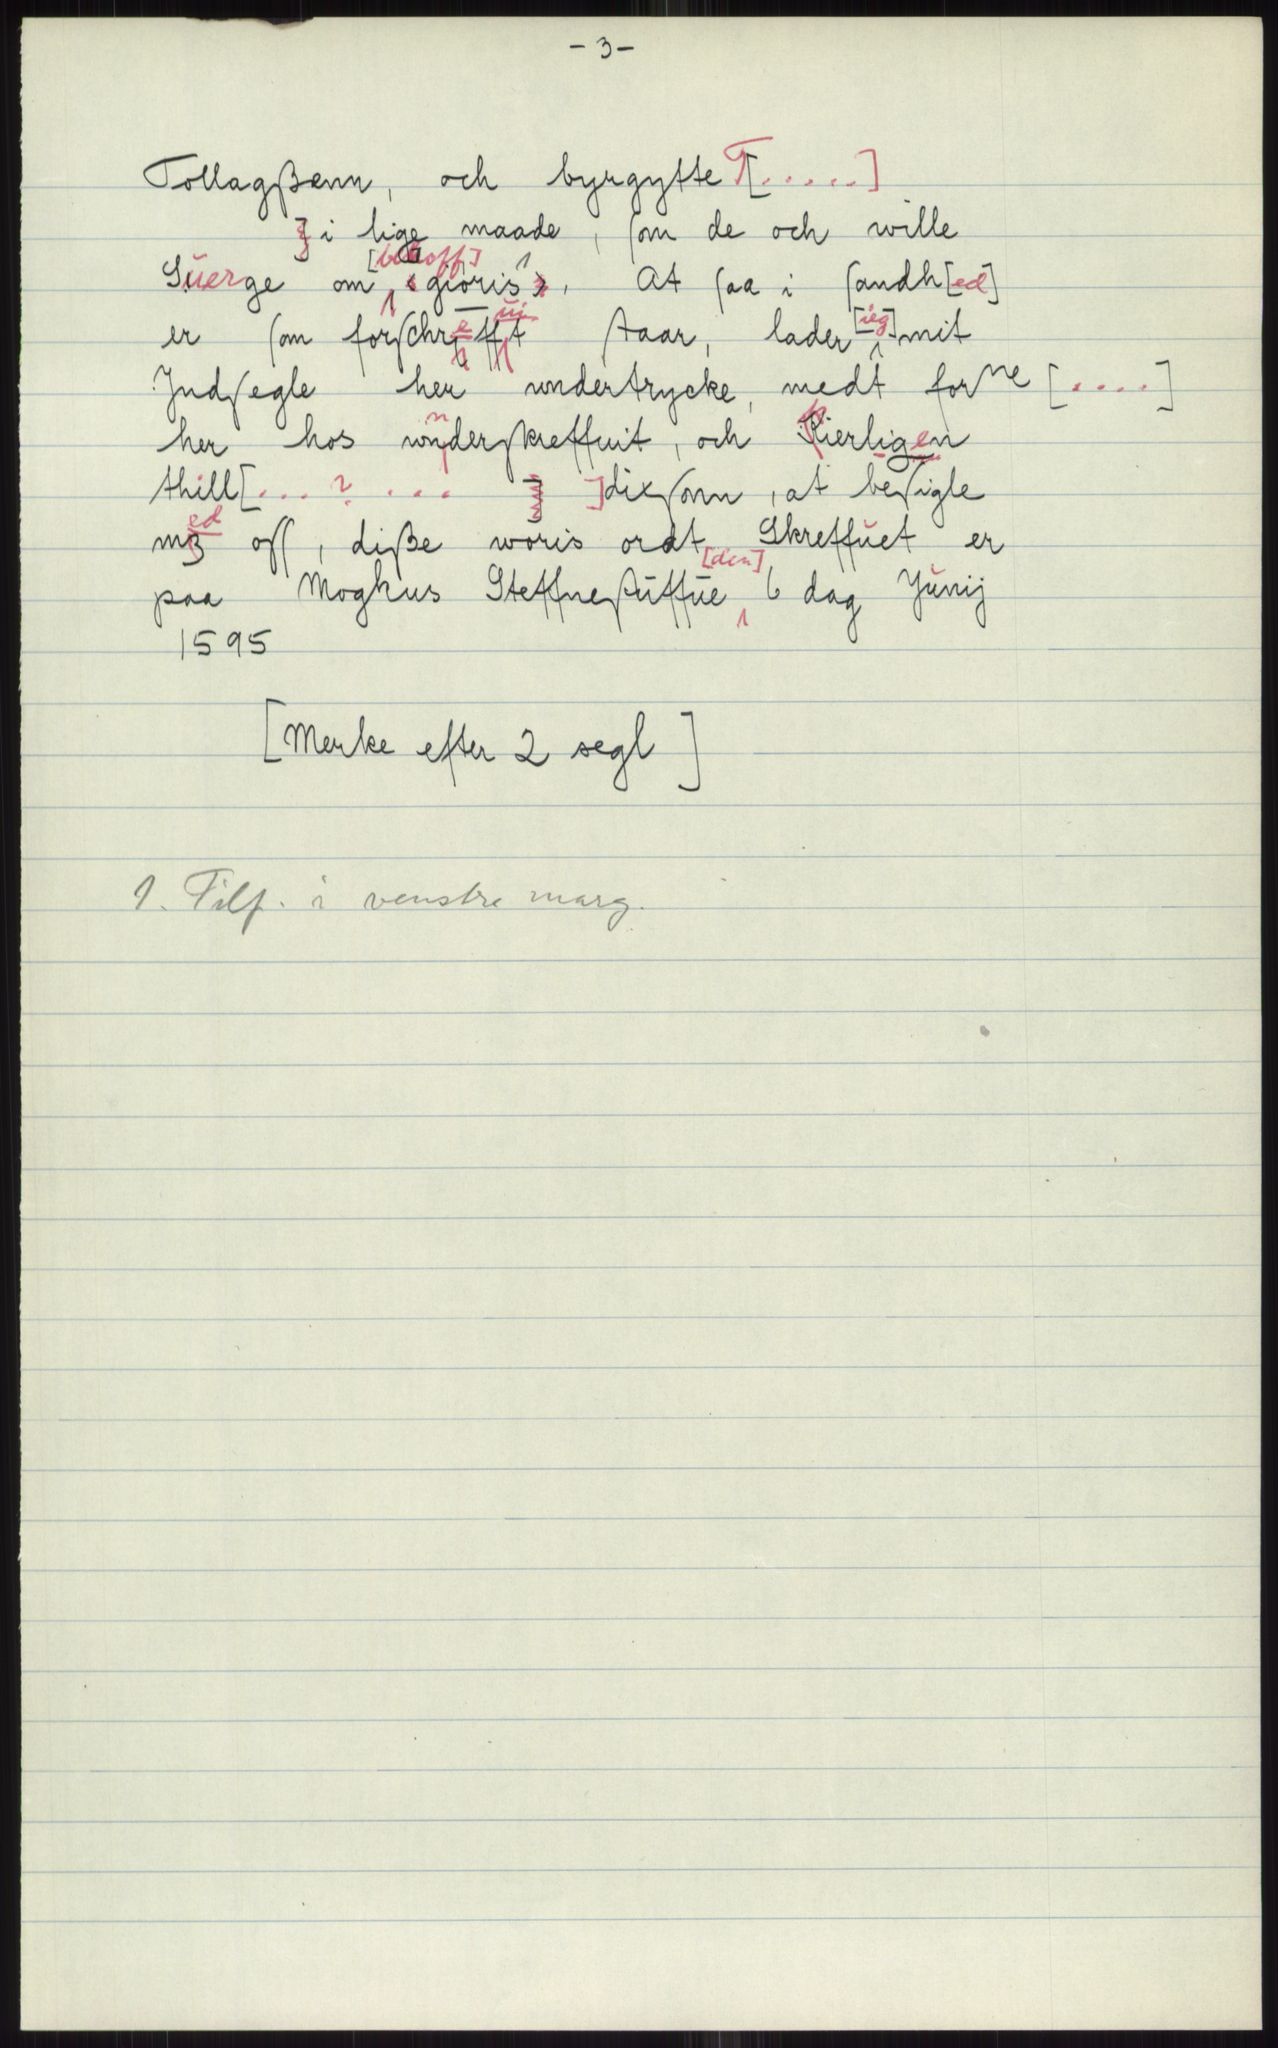 - 3 -
Tollagßenn, och byrgytte T[.....]
] i lige maade, som de och wille
Süerge om [behoff] giöris¹, At saa i sandh[ed]
er som forschreffüit staar, lader [ieg] mit
Jndsegle her wndertrycke, medt forne [....]
her hos wnderskreffuit, och kierligen
thill[...?... ]dixsonn, at besigle
med oss, diße wöris ordt Skreffüet er
paa Moghus Steffnestüffüe [den] 6 dag Jünij
1595
[Merke efter 2 segl]
1. Tilf. i venstre marg.